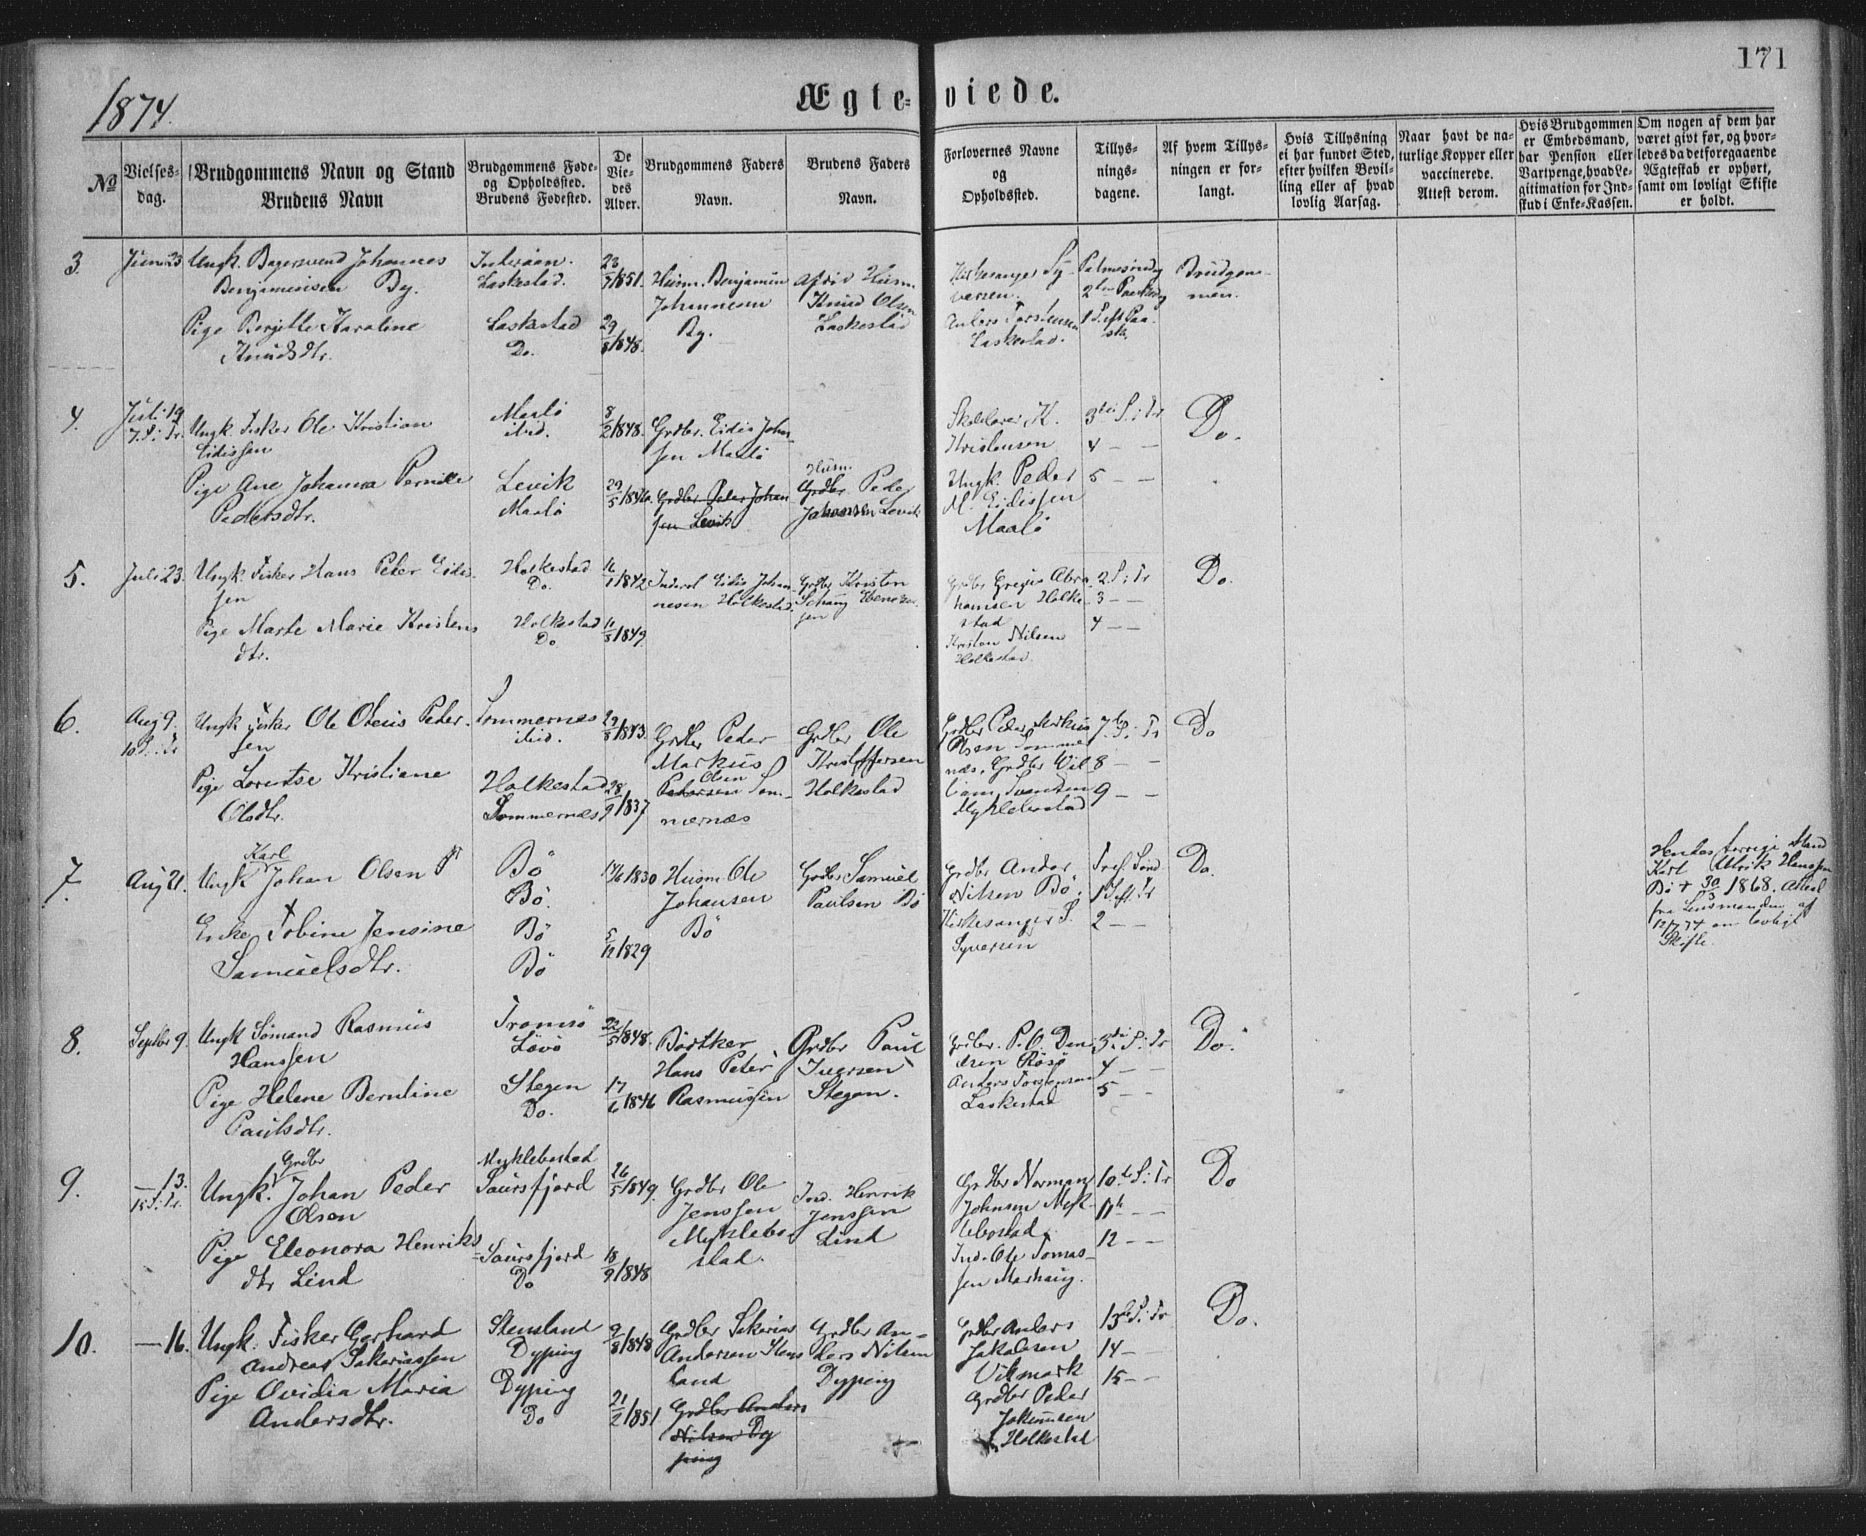 171
1874.
Ægteviede.
No
Vielsesdag.
Brudgommens Navn og Stand
Brudens Navn
Brudgommens Føde-
og Opholdssted.
Brudens Fødested.
De
Vie-
des
Alder.
Brudgommens Faders
Navn.
Brudens Faders
Navn.
Forlovernes Navne
og
Opholdssted.
Tillys-
nings-
dagene.
Af hvem Tillys-
ningen er for-
langt.
Hvis Tillysning
ei har fundet Sted,
efter hvilken Bevil-
ling eller af hvad
lovlig Aarsag.
Naar havt de na-
turlige Kopper eller
vaccinerede.
Attest derom.
Hvis Brudgommen
er Embedsmand,
har Pension eller
Vartpenge, hvad Le-
gitimation for Ind-
skud i Enke-Kassen.
Om nogen af dem har
været givt før, og hvor-
ledes da det foregaaende
Ægteskab er ophørt,
samt om lovligt Skifte
er holdt.
3.
Juni 23
Ungk. Bagersvend Johannes
Benjaminsen By.
Pige Berjette Karoline
Knudsdtr.
Inderøen.
Laskestad.
Laskestad
Do.
23/7 1851.
29/8 1848.
Husm. Benjamin
Johannesen
By.
Afdød Husm
Knud Olsen
Laskestad
Kirkesanger Sy-
versen.
Anders Torstensen
Laskestad.
Palmesøndag
2den Paaskedag
1 S. eft Paa-
ske
Brudgom-
men.
4.
Juli 19
7. S. i Tr.
Ungk. Fisker Ole Kristian
Eidissen
Pige Ane Johanna Pernille
Pedersdtr.
Maalø
ibid.
Levik
Maalø
8/2 1848.
29/5 1846.
Grdbr. Eidis Johan-
sen Maalø
Grdbr Peder Johan
sen Levik
Husm.
Grdbr Peder
Johansen Levik
Skolelærer K.
Kristensen
Ungk. Peder
M. Eidissen
Maalø
3die S. i Tr
4 — —
5 — —
Do.
5.
Juli 23.
Ungk. Fisker Hans Peter Eidis-
sen
Pige Marte Marie Kristens
dtr.
Holkestad
Do.
Holkestad
Do
16/1 1842
11/8 1849
Inderst Eidis Johan-
nesen Holkestad.
Grdbr Kristen
Schaug Ebenezer-
sen
Grdbr Gregus Abra-
hamsen Holke-
stad
Kristen Nilsen
Holkestad.
2. S. i Tr
3 — —
4 — —
Do.
6.
Aug 9.
10 S. i Tr
Ungk Fisker Ole Oleus Peder-
sen
Pige Lorentse Kristiane
Olsdtr.
Sommernes
ibid.
Holkestad
Sommernæs
29/8 1843.
28/9 1837
Grdbr Peder
Markus
Olsen
Pedersen Som-
mernæs
Grdbr Ole
Kristoffersen
Holkestad
Grdbr Peder Markus
Olsen Sommer
næs, Grdbr Wil-
liam Svendsen
Myklebostad
7de S. i Tr
8 — —
9 — —
Do
7.
Aug 21.
Karl
Ungk Johan Olsen
Enke Tobine Jensine
Samuelsdtr.
Bö
Bö.
Bö
Bö
14/6 1830
5/12 1829
Husm Ole
Johansen
Bö
Grdbr Samuel
Paulsen Bö
Grdbr Andor
Nilsen Bö.
Kirkesanger S.
Syversen
Tref. Sönd
1 S eft. Tr
2 — —
Do.
Hendes forrige Mand
Karl Ulrik Hanssen
Bö † 30/3 1868. Attest
fra Lensmanden af
12/7 74 om lovligt
Skifte.
8.
Septbr 9.
Ungk Sömand Rasmus
Hanssen
Pige Helene Berntine
Paulsdtr.
Tromsö
Lövö
Stegen
Do.
22/5 1848.
17/6 1846
Bödtker
Hans Peter
Rasmussen
Grdbr Paul
Iversen
Stegen.
Grdbr. P. O. Dan
elsen Rösö
Anders Torstensen
Laskestad
3die S. i Tr
4 — —
5 — —
Do.
9.
— 13.
15 S. i Tr.
Grdbr
Ungk. Johan Peder
Olsen
Pige Eleonora Henriks
dtr Lind
Myklebostad
Saursfjord
Saursfjord
Do
26/5 1849.
18/9 1848
Grdbr Ole
Jenssen
Myklebo-
stad.
Ind. Henrik
Jenssen
Lind
Grdbr Norman
Johnsen Myk-
lebostad
Ind. Ole Tomas-
sen Marhaug.
10de S. i Tr
11te — —
12 — —
Do
10.
— 16.
Ungk. Fisker Gerhard
Andreas Sakariassen
Pige Ovidia Maria
Andersdtr.
Stensland
Dyping
Dyping
Do
9/8 1848
21/2 1851
Grdbr Sakarias
Andersen Stens
land
Grdbr Anders
Nilsen Dy
ping
Grdbr An-
ders Nilsen
Dyping
Grdbr Anders
Jakobsen
Vikmark
Grdbr Peder
Jakobsen
Holkestad
13de S. i Tr
14 —
15 — —
Do.